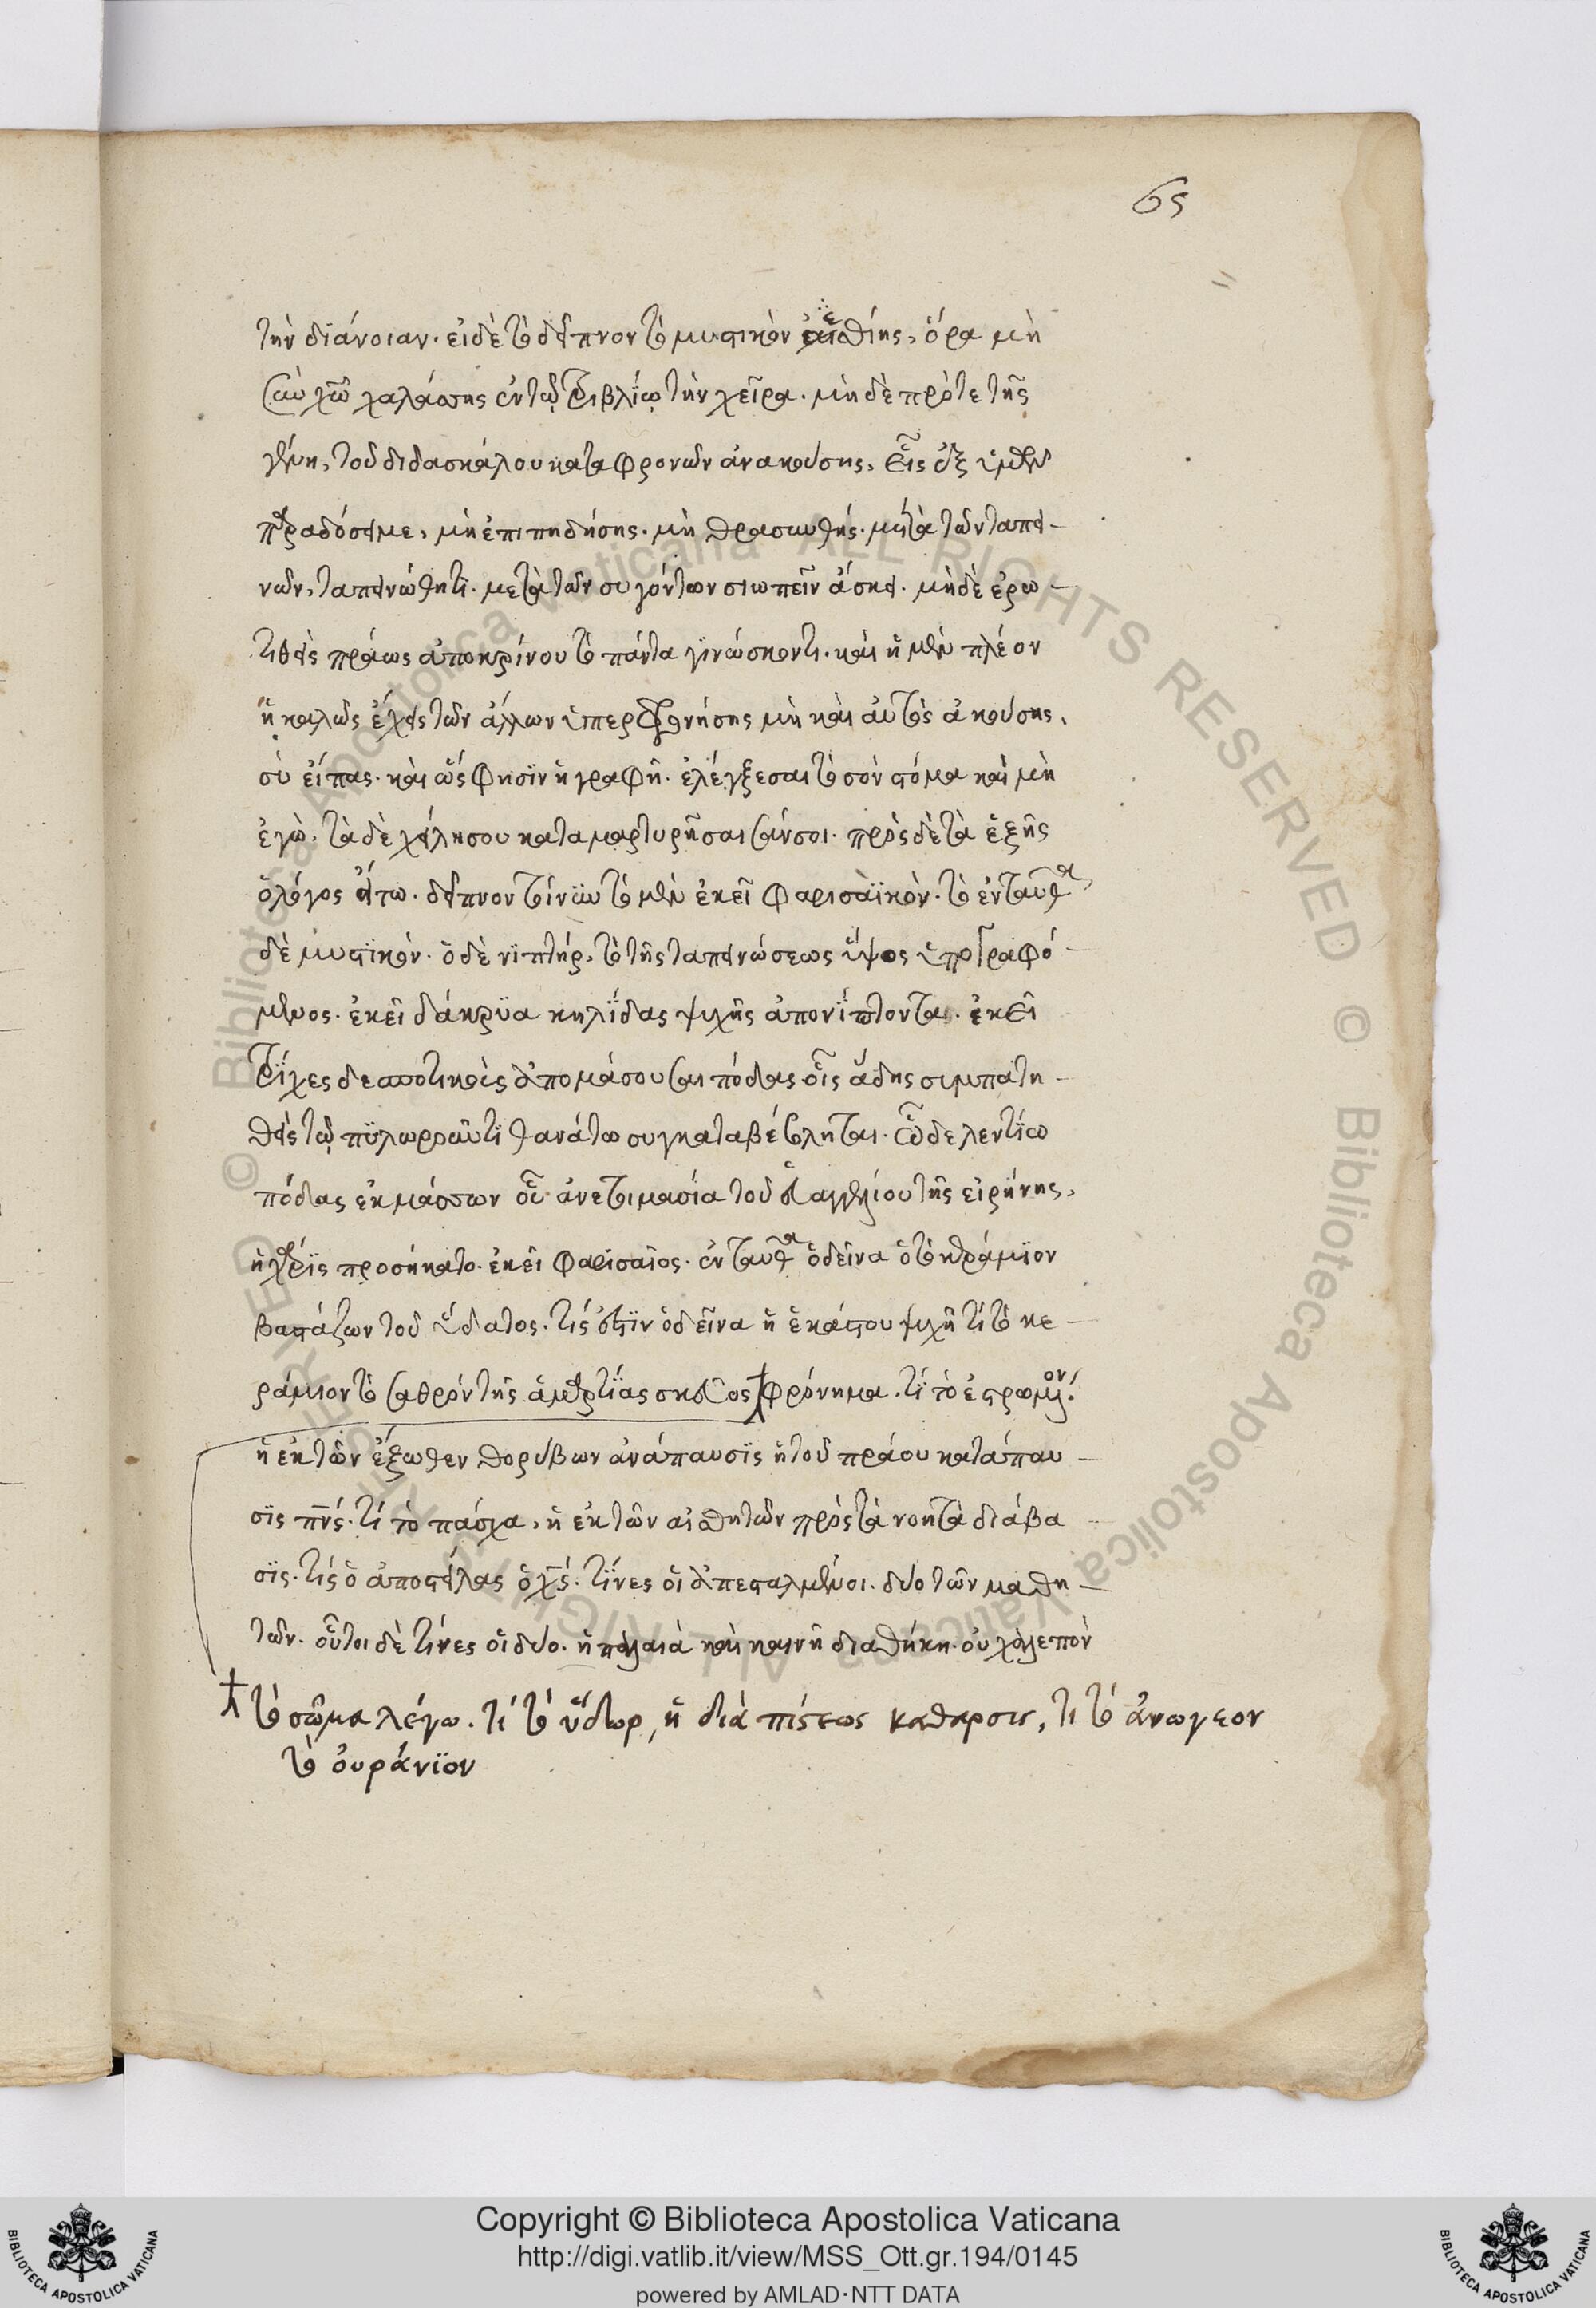 65
τὴν διάνοιαν. εἰ δὲ τὸ δεῖπνον τὸ μυστικὸν ἐσθίης, ὅρα μὴ
σὺν χῶ χαλάσης ἐν τῷ τρϊβλίῳ τὴν χεῖρα. μὴ δὲ πρότε τῆς
του διδασκάλου καταφρονῶν ἀνακούσης, εἷς ἐξ ὑμῶν
παραδόσει με, μὴ ἐπιπηδήσης. μὴ θρασυνθῆς. μετὰ τῶν ταπει-
νῶν, ταπεινώθητι. μετὰ τῶν συγόντων σιωπεῖν ἄσκει. μὴδὲ ἐρω-
τιθεὶς πράως ἀποκρίνου τὸ πάντα γινώσκοντι. καὶ ἢ μὲν πλέον
ἢ καλῶς ἔχεις τῶν ἄλλων ὑπερ μὴ καὶ αὐτὸς ἀκούσης,
σὺ εἶπας. καὶ ὥς φησϊν ἡ γραφὴ. ἐλέγξεσαι τὸ σὸν στόμα καὶ μὴ
ἐγὼ, τὰ δὲ χείλη σου καταμαρτυρῆσαι σοι. πρὸς δὲ τὰ ἑξῆς
ὁ λόγος δεῖπνον τὸ μὲν ἐκεῖ φαρισαϊκὸν. τὸ ἐνταῦθα
δὲ μυστϊκὸν. ὁ δὲ νιπτὴρ, τὸ τῆς ταπεινώσεως ὕψος ὑπογραφό-
μενος. ἐκεῖ δάκρϋα κηλῖδας ψυχῆς ἀπονίπτονται. ἐκεῖ
τρίχες δεσποτικοὺς ἀπομάσουσι πόδας οἷς ἅδης συμπατη-
θεὶς τῷ πϋλωροῦντι θανάτω συγκαταβέβληται. ὧδε λεντίω
πόδας ἐκμάσσων οὗ ἀνετιμασία τοῦ εὐαγγελίου τῆς εἰρήνης,
ἡ χάρϊς προσήκατο. ἐκεῖ φαρισαῖος. ἐνταῦθα ὁ δεῖνα ὁ τὸ κεράμϊον
βαστάζων τοῦ ὕδατος. τίς ἐστϊν ὁ δεῖνα ἡ ἑκάστου ψυχὴ τί τὸ κε-
ράμιον τὸ σαθρὸν τῆς ἁμαρτίας σκεῦος φρόνημα. τί τὸ ἐστρωμένον;
ἡ ἐκ τῶν ἔξωθεν θορύβων ἀνάπαυσϊς ἡ τοῦ πράου κατάπαυ-
σϊς πνς. τί τὸ πάσχα, ἡ ἐκ τῶν αἰσθητῶν πρὸς τὰ νοητὰ διάβα-
σϊς. τίς ὁ ἀποστείλας ὁ χς. τίνες οἱ ἀπεσταλμένοι. δύο τῶν μαθη-
τῶν. οὗτοι δὲ τίνες οἱ δύο. ἡ παλαιὰ καὶ καινὴ διαθήκη. οὐ χάλεπὸν
τὸ σῶμα λέγω. τί τὸ ὕδωρ, ἡ διὰ πίστεως καθαρσις, τι τὸ ἀνωγεον
τὸ οὐράνϊον
Copyright © Biblioteca Apostolica Vaticana
http://digi.vatlib.it/view/MSS_Ott.gr.194/0145
powered by AMLAD·NTT DATA